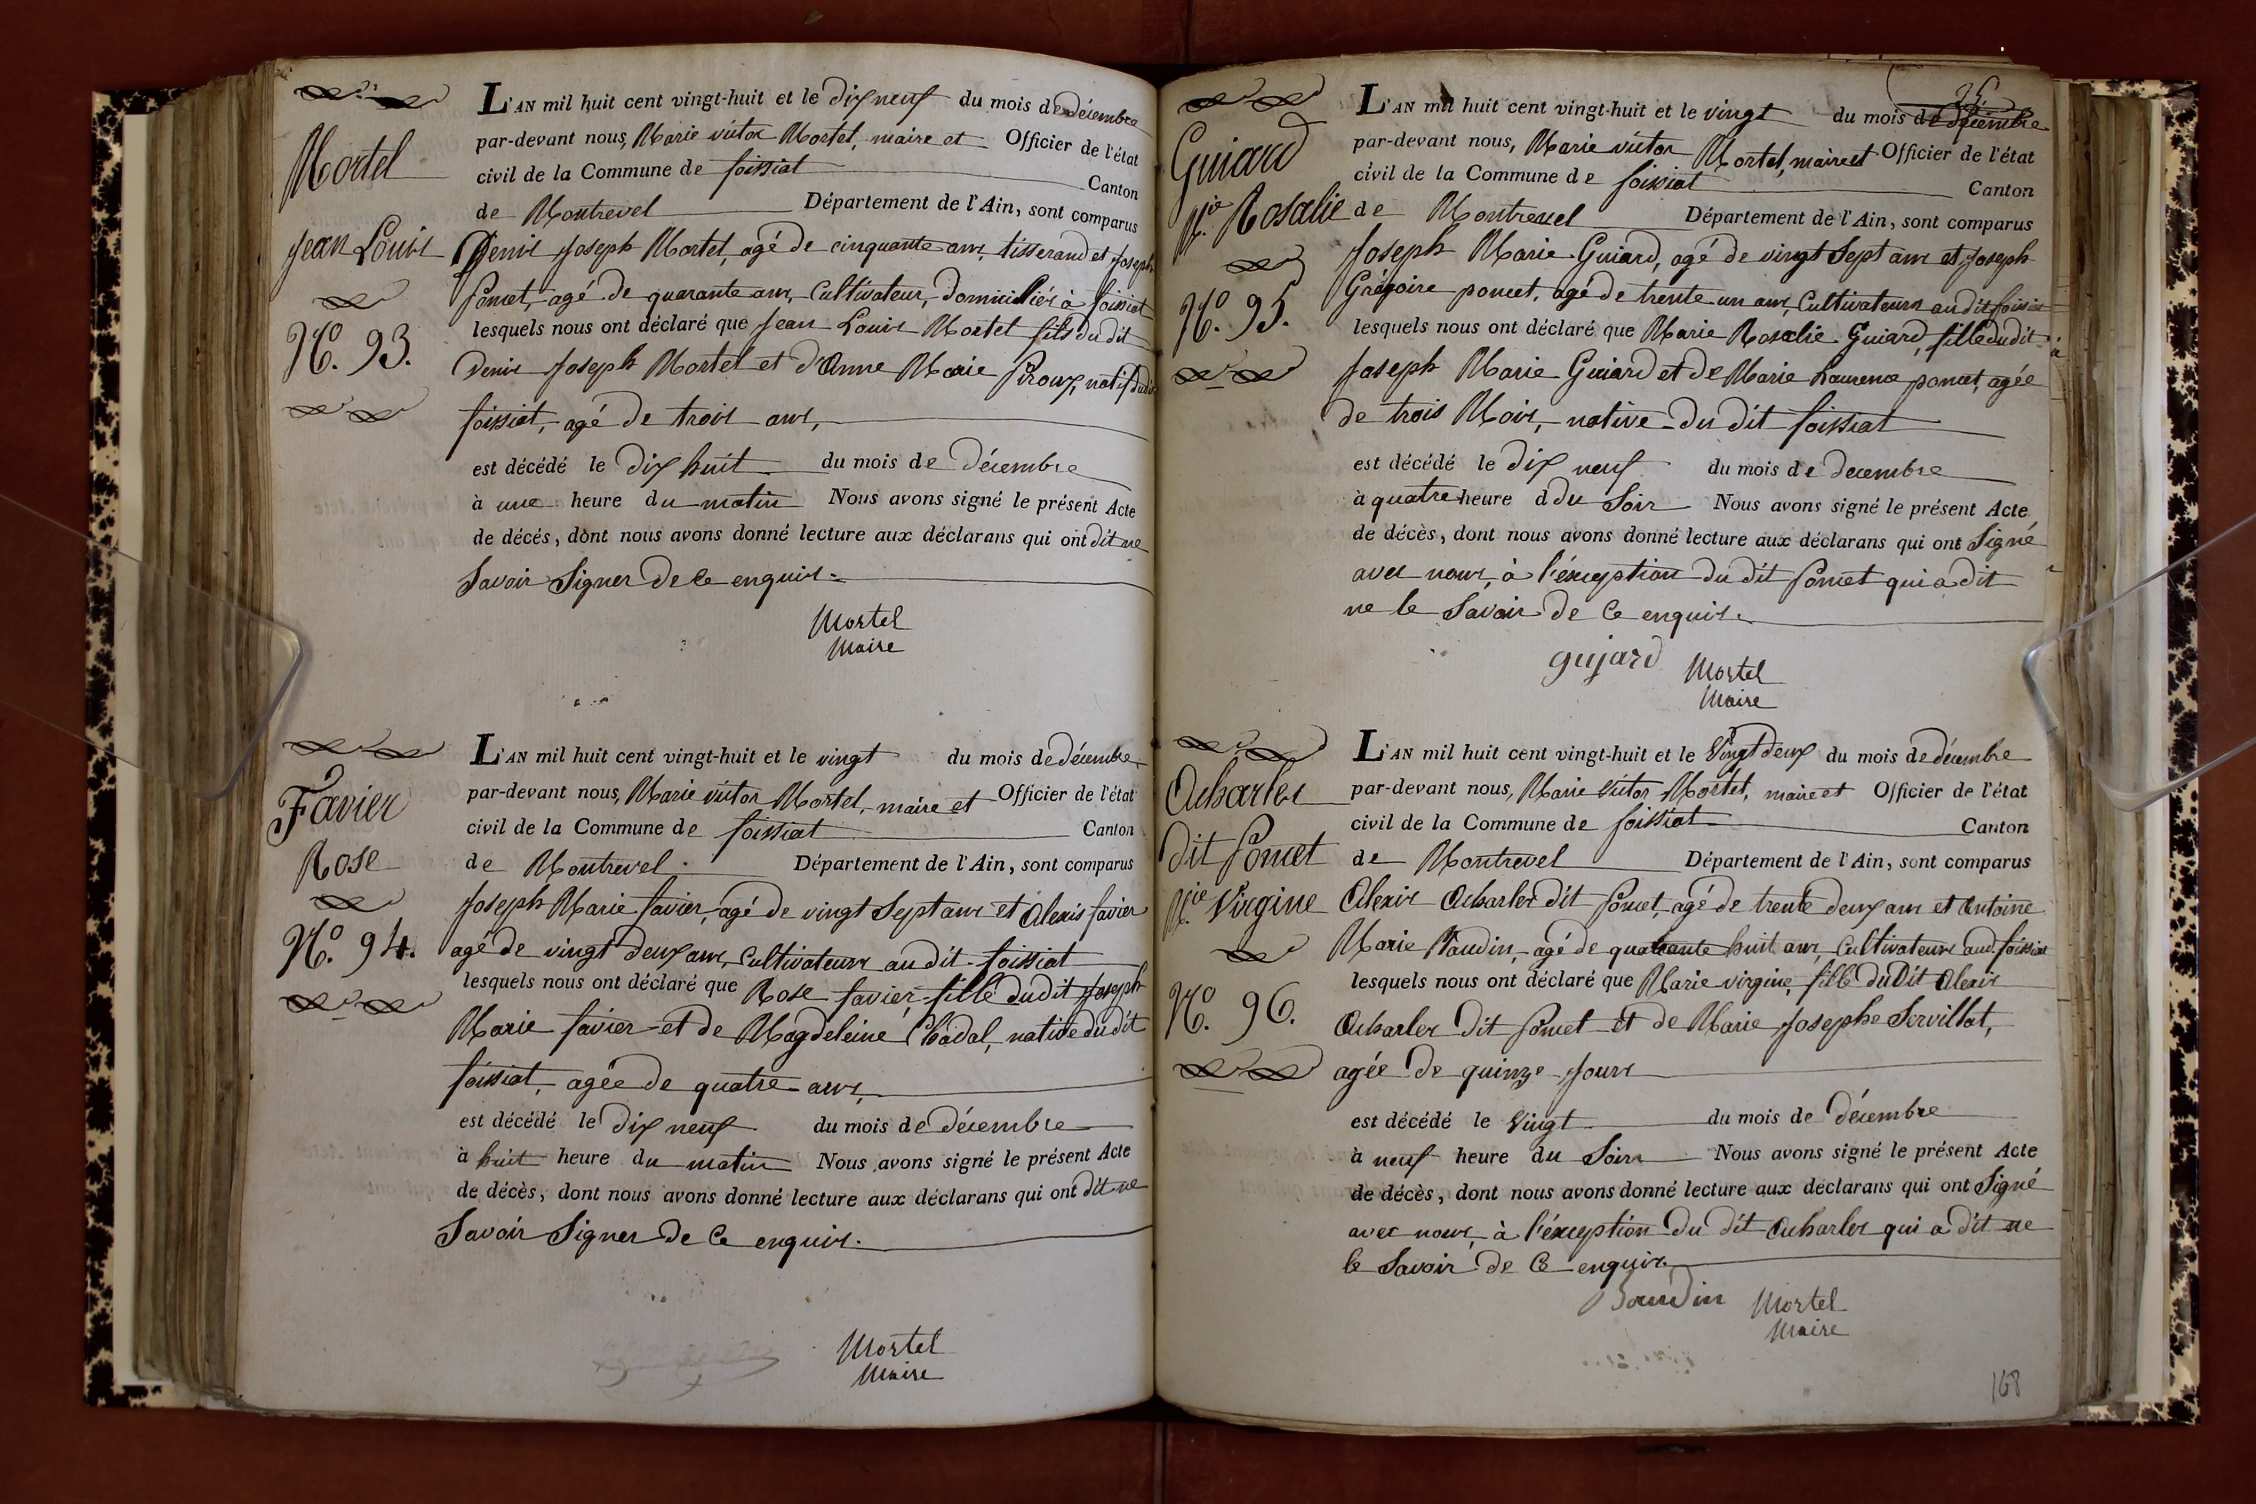 Mortel
Jean Louis
N.o 93.
L'AN mil huit cent vingt-huit et le dix neuf du mois de décembre
par-devant nous, Marie victor Mortel, maire et Officier de l'état
civil de la Commune de foissiat Canton
de Montrevel Département de l'Ain, sont comparus
Denis Joseph Mortel, agé de cinquante ans, tisserand et Joseph
Poncet, agé de quarante ans, Cultivateur, Domiciliés à foissiat
lesquels nous ont déclaré que Jean Louis Mortel fils du dit
Denis Joseph Mortel et d'Anne Marie Piroux, natif dudit
foissiat, agé de trois ans,
est décédé le dix huit du mois de décembre
à une heure du matin Nous avons signé le présent Acte
de décés, dont nous avons donné lecture aux déclarans qui ont dit ne
Savoir Signer De Ce enquis.
Mortel
Maire
Favier
Rose
N.o 94.
L'AN mil huit cent vingt-huit et le vingt du mois de décembre
par-devant nous, Marie victor Mortel, maire et Officier de l'état
civil de la Commune de foissiat Canton
de Montrevel Département de l'Ain, sont comparus
Joseph Marie favier, agé de vingt Sept ans et Alexis favier
agé de vingt deux ans, Cultivateurs au dit foissiat
lesquels nous ont déclaré que Rose favier fille dudit Joseph
Marie favier et de Magdeleine Chadal, native du dit
foissiat, agée de quatre ans,
est décédé le dix neuf du mois de décembre
à huit heure du matin Nous avons signé le présent Acte
de décès, dont nous avons donné lecture aux déclarans qui ont dit ne
Savoir Signer De Ce enquis.
Mortel
Maire
Guiard
M.ie Rosalie
N.o 95.
L'AN mil huit cent vingt-huit et le vingt du mois de décembre
par-devant nous, Marie victor Mortel, maire et Officier de l'état
civil de la Commune de foissiat Canton
de Montrevel Département de l'Ain, sont comparus
Joseph Marie Guiard, agé de vingt Sept ans et Joseph
Grégoire poncet, agé de trente un ans, Cultivateurs au dit foissiat
lesquels nous ont déclaré que Marie Rosalie Guiard, fille dudit
Joseph Marie Guiard et de Marie Laurence poncet, agée
de trois Mois, native du dit foissiat
est décédé le dix neuf du mois de decembre
à quatre heure d du Soir Nous avons signé le présent Acte
de décès, dont nous avons donné lecture aux déclarans qui ont Signé
avec nous, à l'éxception du dit Poncet qui a dit
ne le Savoir de Ce enquis.
gujard Mortel
Maire
Acharles
dit Poncet
M.ie Virgine
N.o 96.
L'AN mil huit cent vingt-huit et le Vingt deux du mois de décembre
par-devant nous, Marie Victor Mortel, maire et Officier de l'état
civil de la Commune de foissiat Canton
de Montrevel Département de l'Ain, sont comparus
Alexis Acharles dit Poncet, agé de trente deux ans et Antoine
Marie Baudin, agé de quarante huit ans, Cultivateurs aud. foissiat
lesquels nous ont déclaré que Marie virgine, fille du Dit Alexis
Acharles dit Poncet et de Marie Josephe Servillat,
agée de quinze Jours
est décédé le Vingt du mois de décembre
à neuf heure du Soir Nous avons signé le présent Acte
de décès, dont nous avons donné lecture aux declarans qui ont Signé
avec nous, à l'éxception du dit Acharles qui a dit ne
le Savoir de Ce enquis.
Baudin Mortel
Maire
168